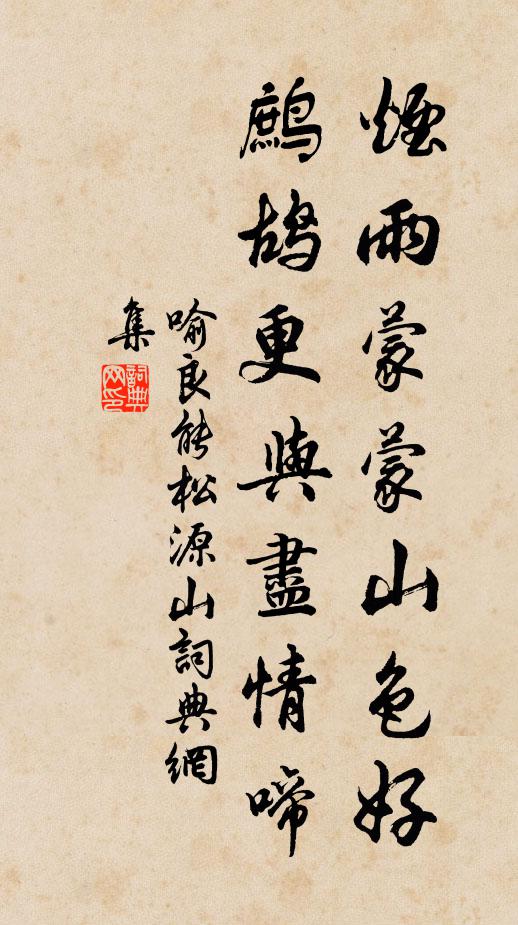 煙雨蒙蒙山色好
鷓鴣更與盡情啼
喻良能松源山詞典網
集
詞典网印